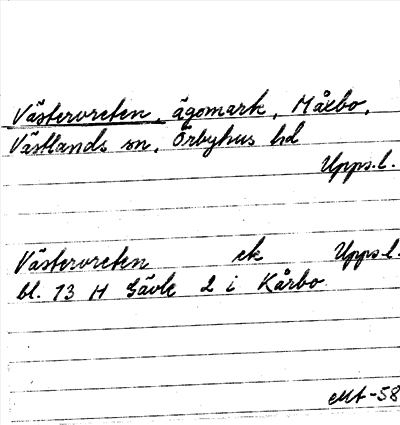 Västervreten, ägomark, Mårbo,
Västlands sn, Örbyhus hd
Upps.l.
Västervreten ek Upps.l.
bl. 13 H Gävle 2 i Kårbo.
-58